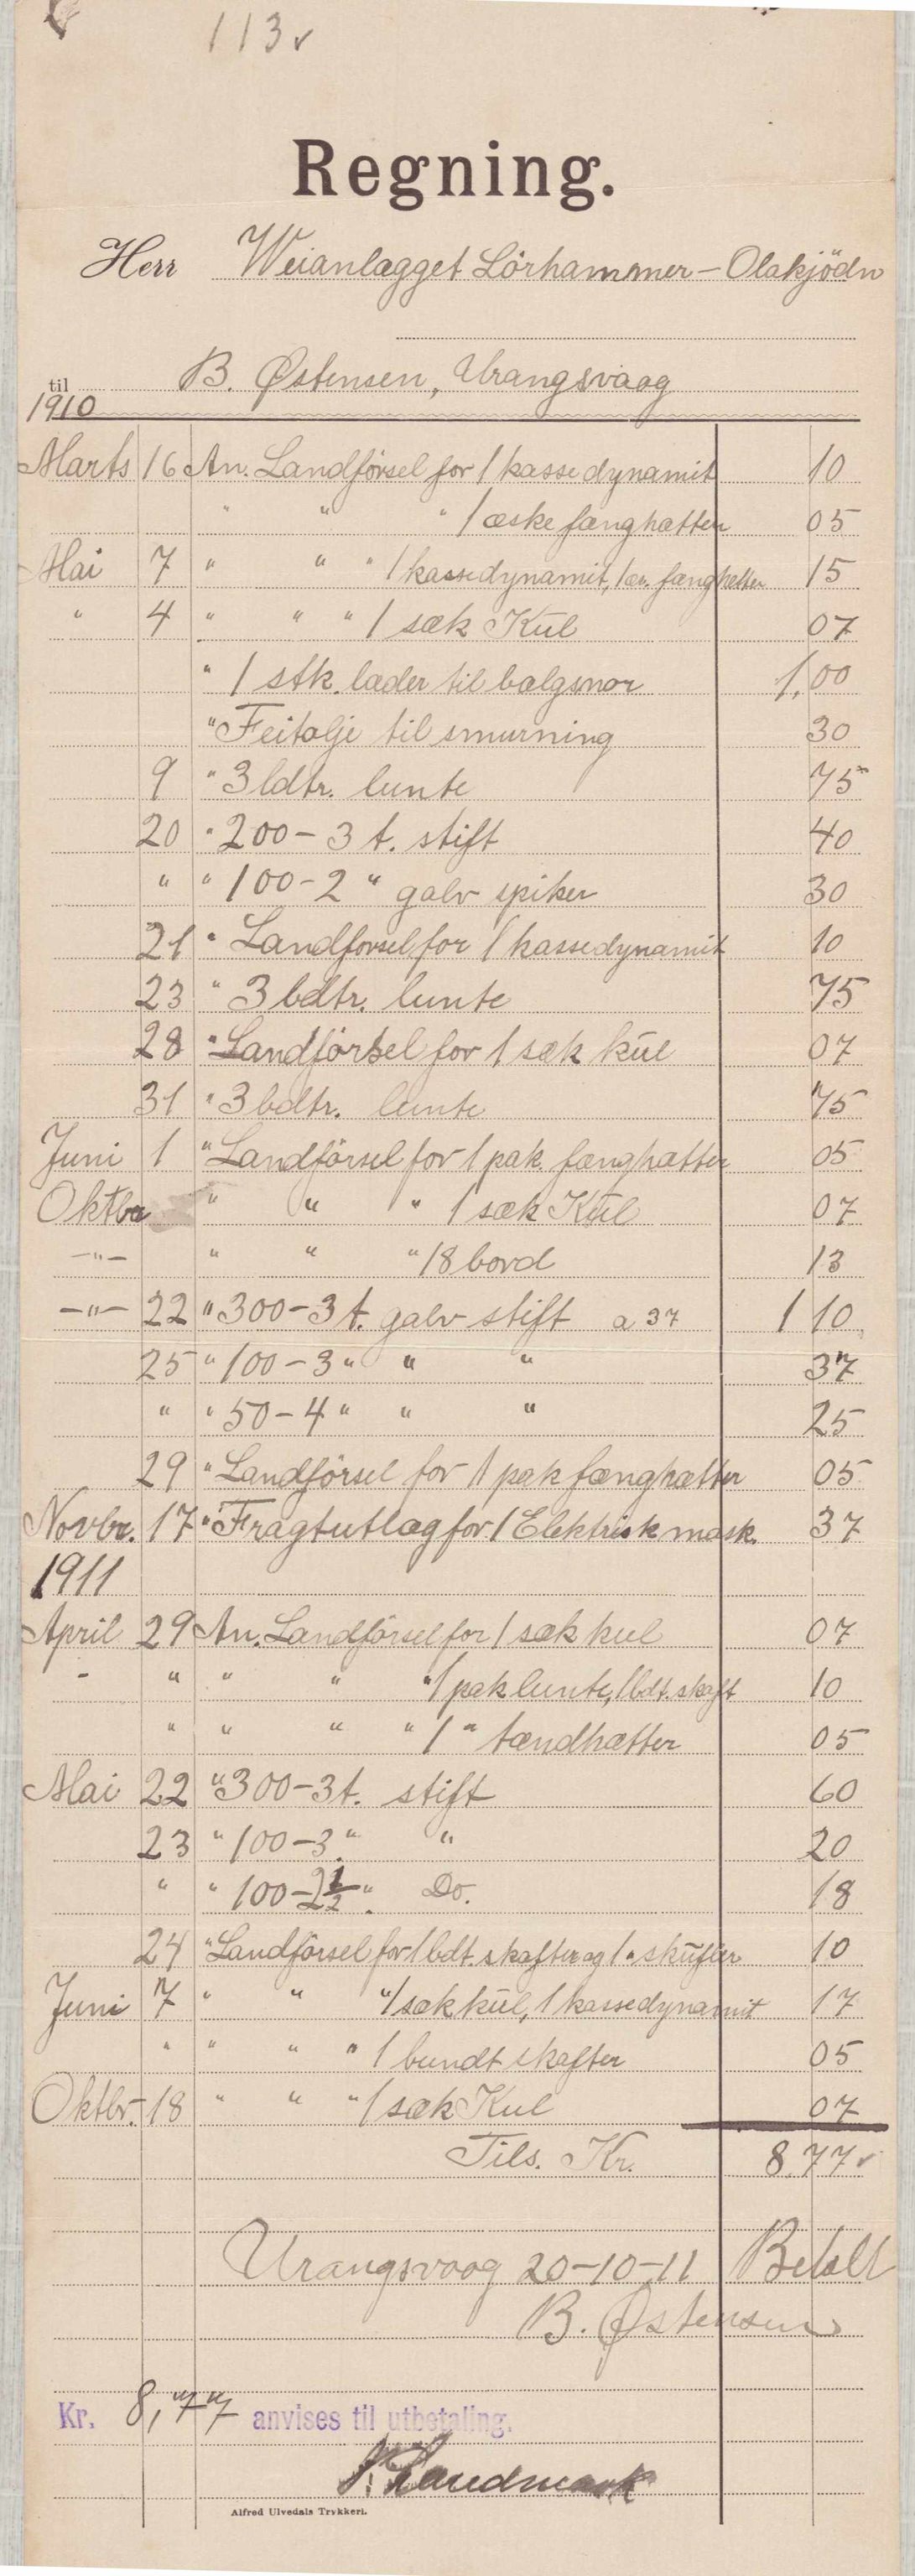 113 v
Regning.
Herr Weianlægget Lörhammer - Olakjödn
til B. Østensen, Urangsvaag
1910
Marts 16 An. Landförsel for 1 kasse dynamit 10
" " " 1 æske fænghætter 05
Mai 7 " " " 1 kasse dynamit, 1 æ. fænghætter 15
" 4 " " " 1 sæk Kul 07
" 1 stk. læder til belgsnor 1.00
" Feitolje til smurning 30
9 " 3 bdtr. lunte 75
20 " 200 - 3 t. stift 40
" " 100 - 2 " galv spiker 30
21 " Landforsel for 1 kasse dynamit 10
23 " 3 bdtr. lunte 75
28 " Landförsel for 1 sæk kul 07
31 " 3 bdtr. lunte 75
Juni 1 " Landförsel for 1 pak. fænghætter 05
Oktbr " " " 1 sæk Kul 07
-"- " " " 18 bord 13
-"- 22 " 300 - 3 t. galv stift a 37 1 10
25 " 100 - 3 " " " 37
" " 50 - 4 " " " 25
29 " Landförsel for 1 pak fænghætter 05
Novbr. 17 " Fragtutlæg for 1 Elektrisk mask. 37
1911
April 29 An. Landförsel for 1 sæk kul 07
- " " " " 1 pak lunte, 1 bdt. skaft 10
" " " " 1 " tændhætter 05
Mai 22 " 300 - 3 t. stift 60
23 " 100 - 3 " " 20
" " 100 - 2 1/2 " Do. 18
24 " Landförsel for 1 bdt. skafter og 1 " skufler 10
Juni 7 " " " 1 sæk kul, 1 kasse dynamit 17
" " " " 1 bundt skafter 05
Oktbr. 18 " " " 1 sæk Kul 07
Tils. Kr. 8.77 v
Urangsvaag 20-10-11 Betalt
B. Østensen
Kr. 8,77 anvises til utbetaling.
Landmark
Alfred Ulvedals Trykkeri.